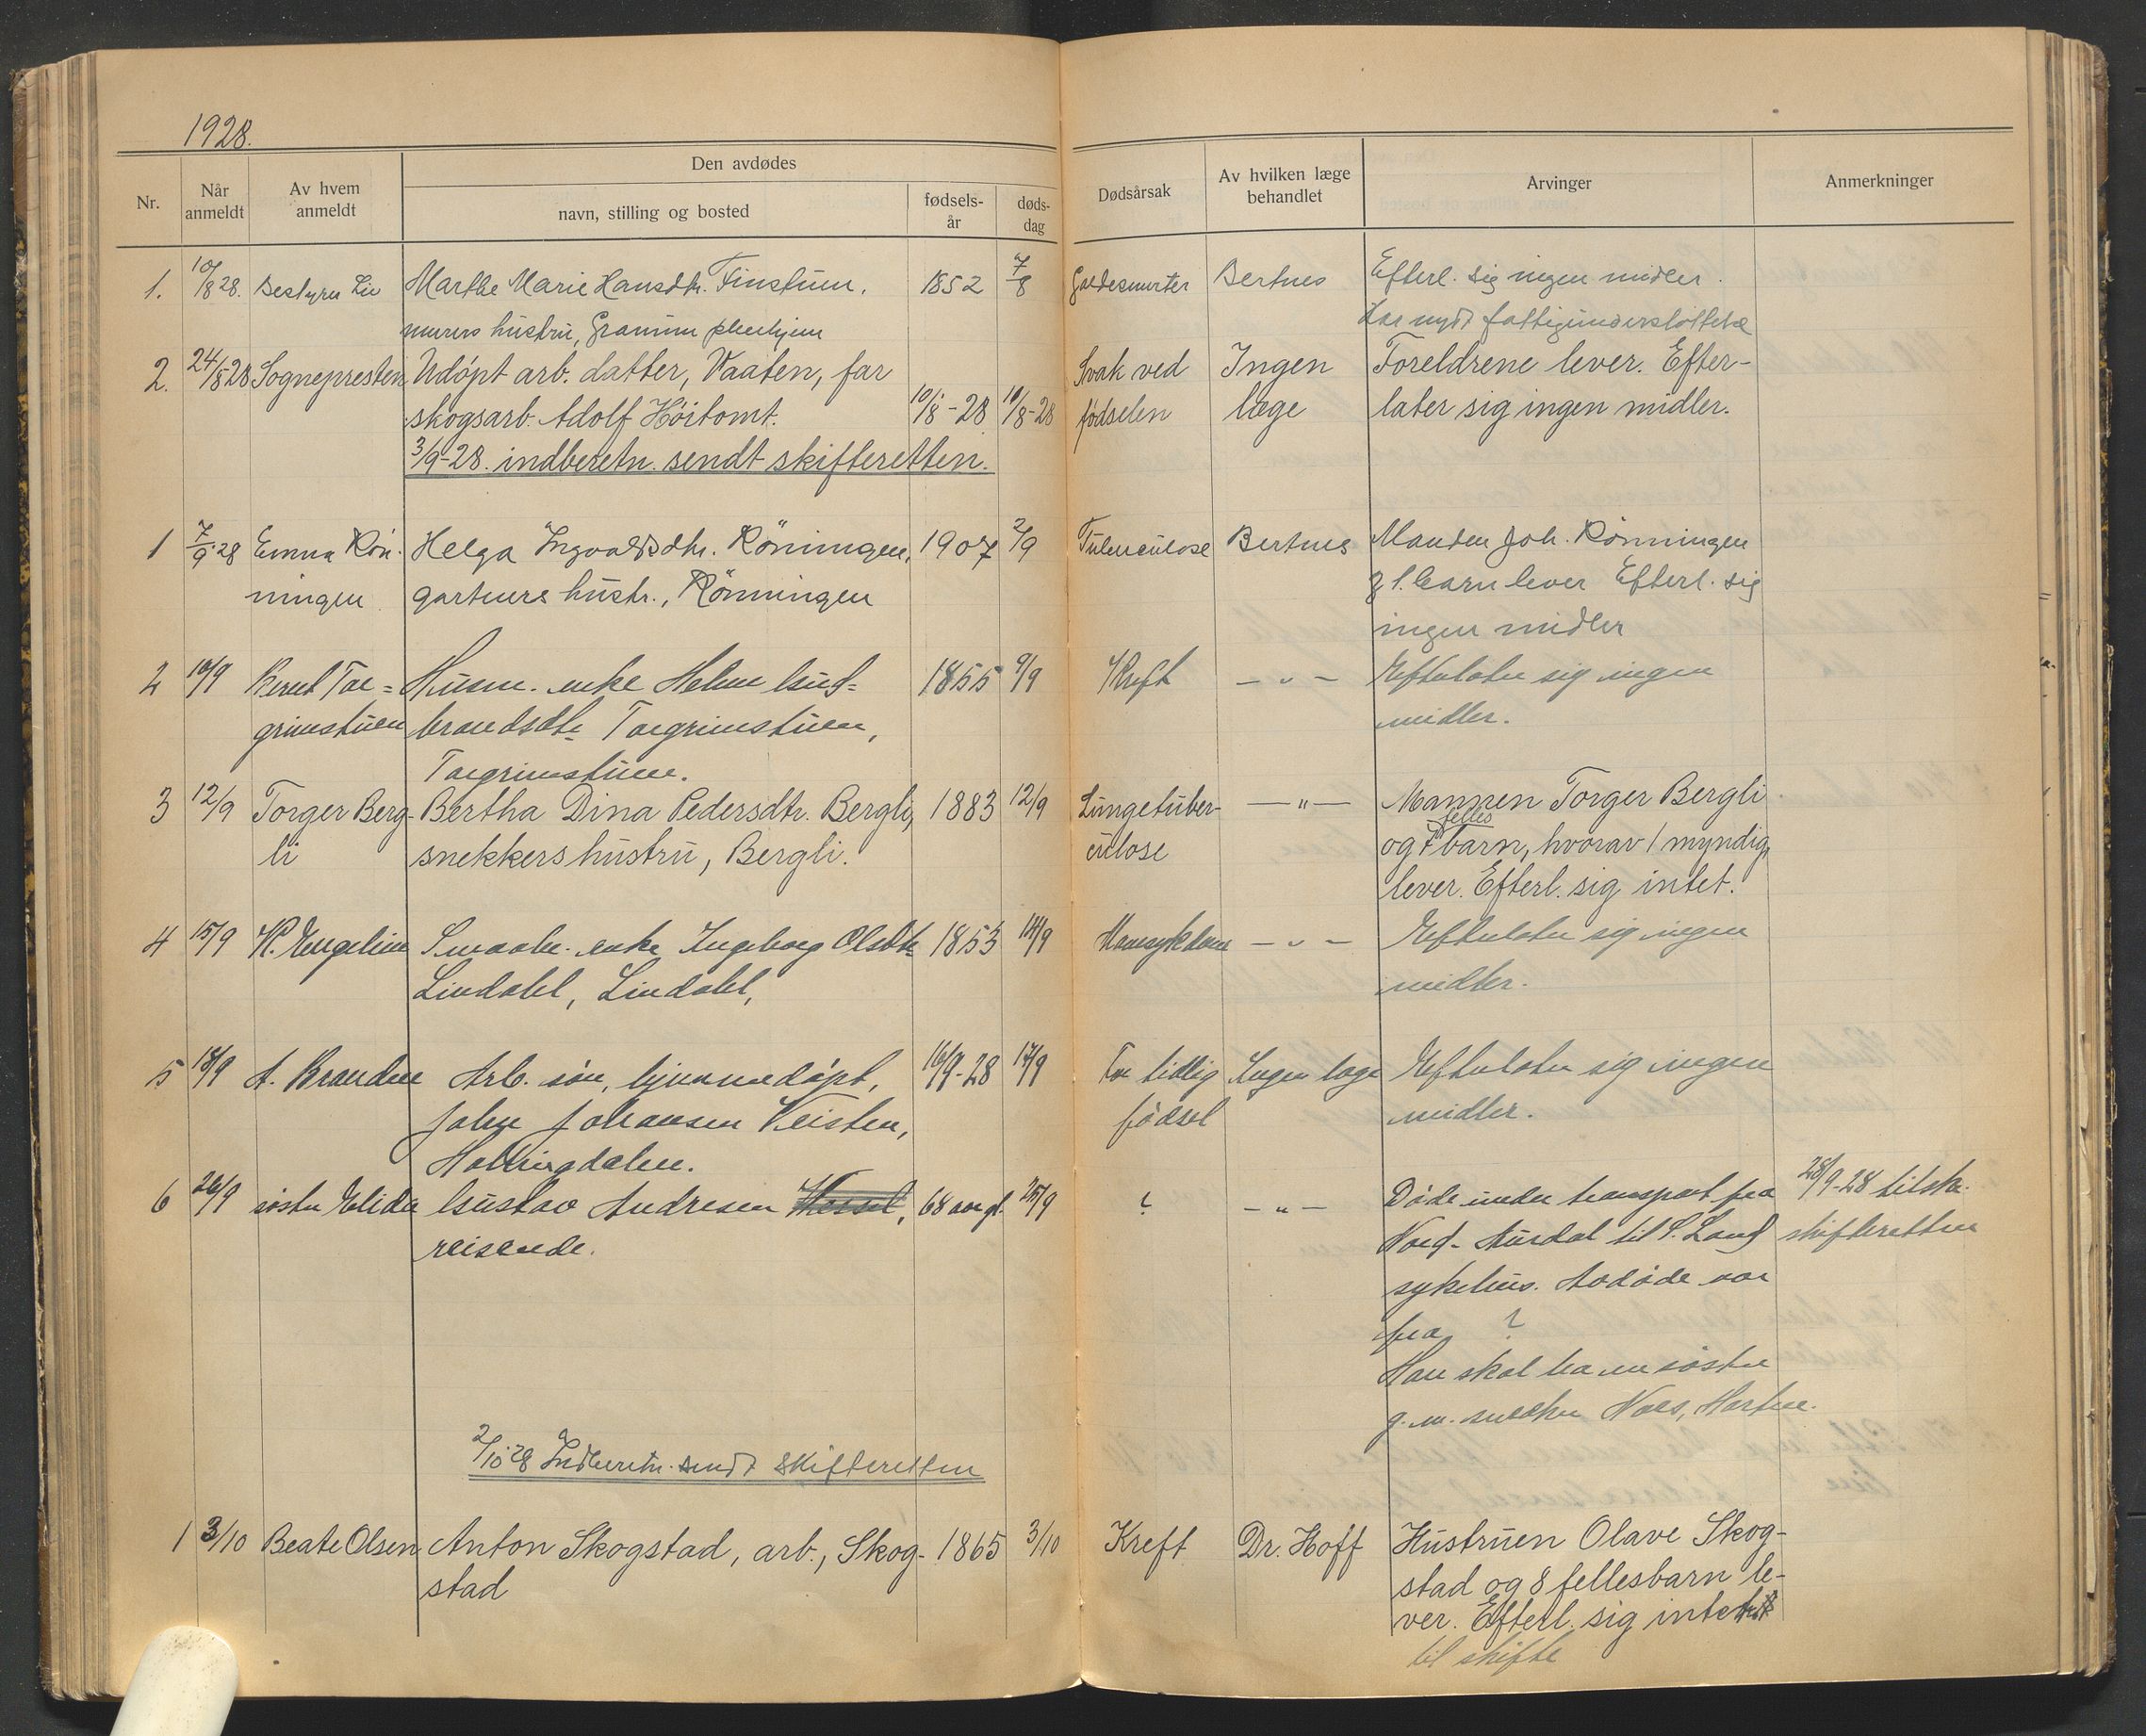 1928.
Nr.
Når anmeldt
Av hvem anmeldt
Den avdødes
navn, stilling og bosted
fødsels-år
døds-dag
Dødsårsak
Av hvilken læge behandlet
Arvinger
Anmerkninger
1. 10/8 28. Bestyrer Marthe Marie Hansdtr. Finstuen, 1852 7/8 Bertnes Efterl. sig ingen midler.
murers hustru, pleiehjem Har nydt fattigunderstøttelse
2. 24/8 28 Sognepresten Udøpt arb. datter, Vaaten, far Svak ved Ingen Foreldrene lever. Efter-
skogsarb. Adolf Høitomt. 10/8-28 10/8-28 fødselen læge later sig ingen midler.
3/9-28. indberetn. sendt skifteretten.
1 7/9 28 Emma Røn- Helga Ingvaldsdtr. Röningen, 1907 2/9 Tuberculose Bertnes Manden Joh. Rønningen
ningen gartners hustr., Rönningen barn lever Efterl. sig
ingen midler
2 10/9 Bernt Tor= Husm. enke Helene Gud= 1855 9/9 Kreft -"- Efterlater sig ingen
grimstuen brandsdtr Torgrimstuen, midler.
Torgrimstuen.
3 12/9 Torger Berg- Bertha Dina Pedersdtr. Bergli, 1883 12/9 Lungetuber- -"- Mannen Torger Bergli
li snekkers hustru, Bergli. culose og 7 felles barn, hvorav 1 myndig,
lever. Efterl. sig intet.
4 15/9 K. Engelien Smaabr. enke Ingeborg Olsdtr 1853 14/9 -"- Efterlater sig ingen
Lindahl, Lindahl, midler.
5 18/9 A. Branden Arb. søn, hjemmedøpt, 16/9-28 17/9 For tidlig Ingen læge Efterlater sig ingen
John Johansen Veisten, fødsel midler.
6 26/9 søster Elida Gustav Andresen Wessel, 68 aar gl. 25/9 ? -"- Døde under transport fra 28/9-28 tilskr.
reisende. Nord-Aurdal til S. Land skifteretten
sykehus. Avdøde var
fra ?
Han skal ha en søster
g.m. snekker Næs,
2/10 28 Indberetn. sendt skifteretten
1 3/10 Beate Olsen Anton Skogstad, arb., Skog- 1865 3/10 Kreft Dr. Hoff Hustruen Olave Skog-
stad stad og 8 fellesbarn le-
ver. Efterl. sig intet
til skifte